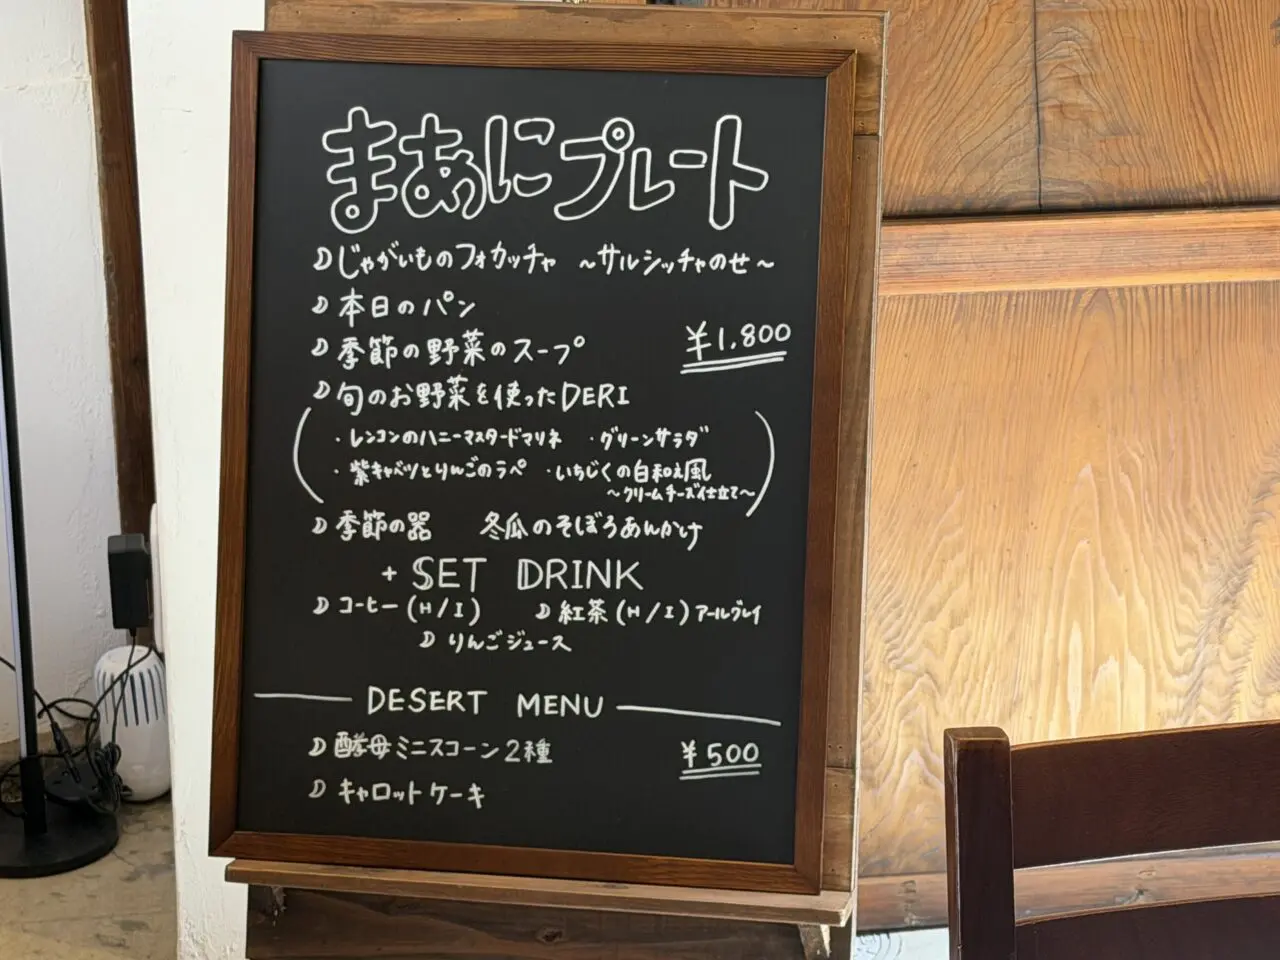 まあにプレート
じゃがいものフォカッチャ ～サルシッチャのせ～
本日のパン
季節の野菜のスープ ¥1,800
旬のお野菜を使ったDERI
・レンコンのハニーマスタードマリネ ・グリーンサラダ
・紫キャベツとりんごのラペ ・いちじくの白和え風
～クリームチーズ仕立て～
季節の器 冬瓜のそぼろあんかけ
+ SET DRINK
コーヒー(H/I) 紅茶(H/I)アールグレイ
りんごジュース
DESERT MENU
酵母ミニスコーン2種 ¥500
キャロットケーキ